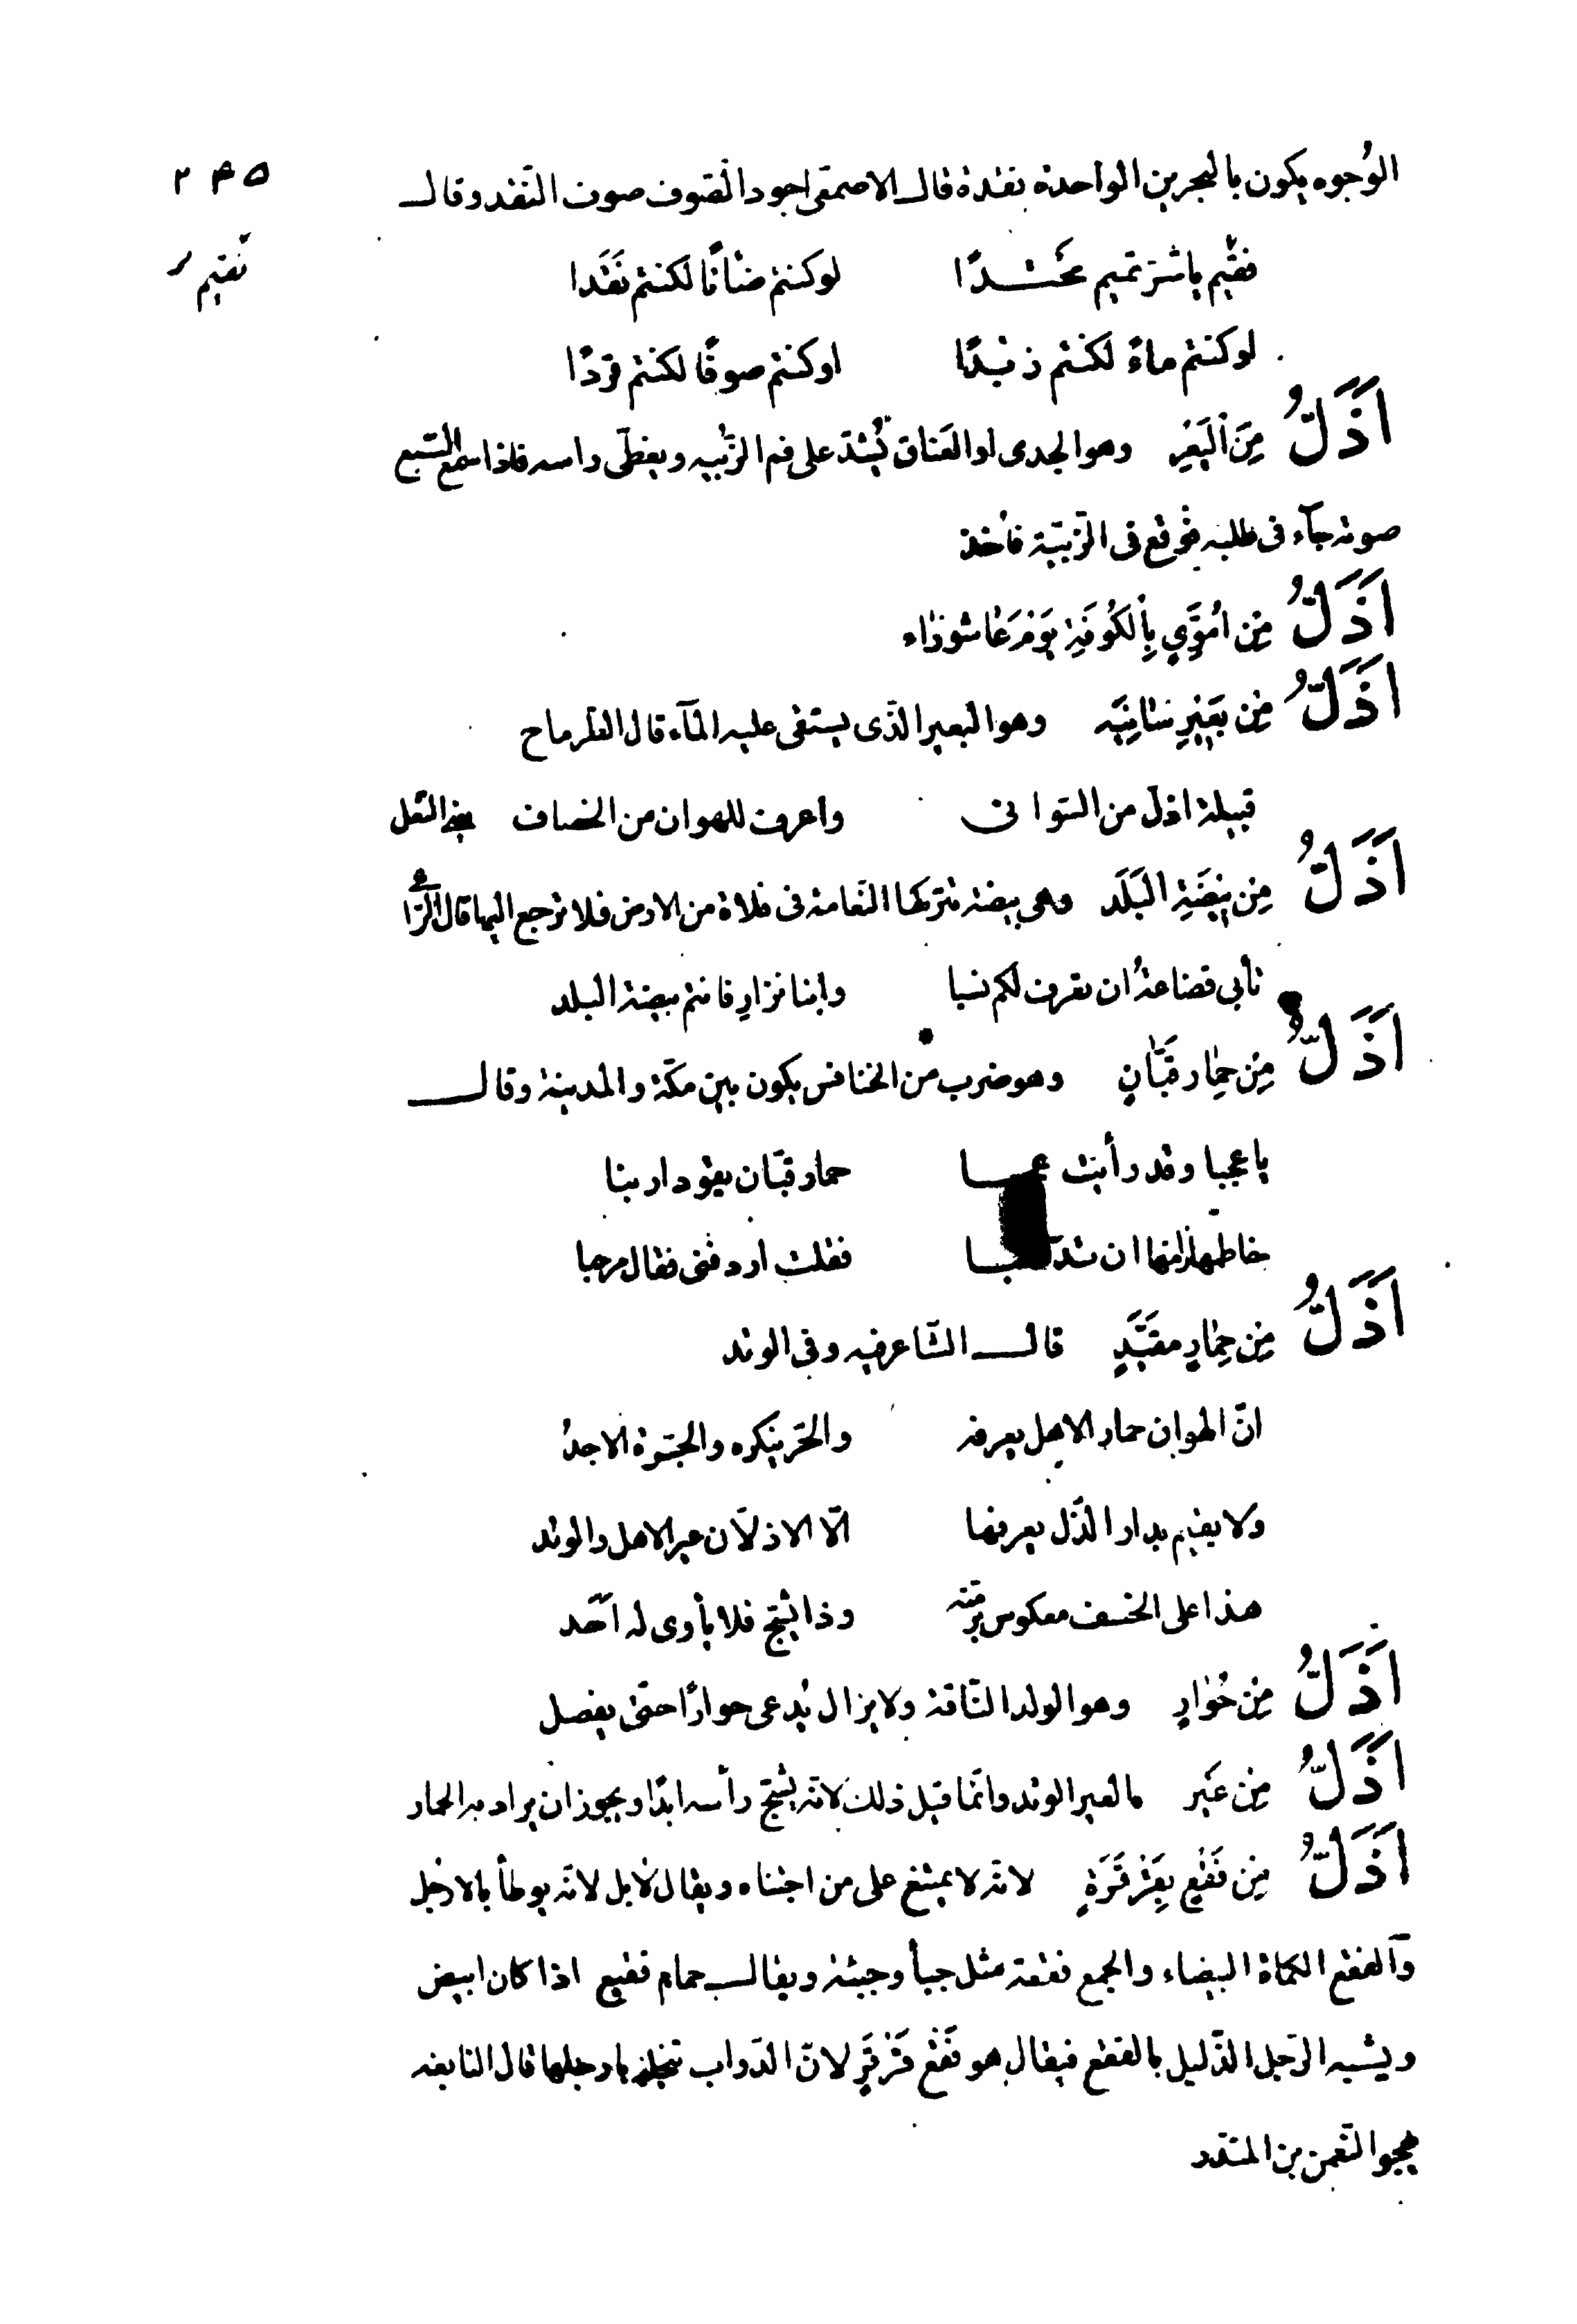 ٢٤٥
الوُجوه يكون بالبحرين الواحدة نقدة قال الاصمعّى اجود الصّوف صوف النّقد وقال
فقيم ياشرّ تميم محتدًا لوكنتم ضانًا لكنتم نَقَدا
فقيم
لوكنتم ماءً لكنتم زبدًا اوكنتم صوفًا لكنتم قردًا
اَذَلُّ مِنَ اليَعْرِ وهو الجدى او العَناق يُشدّ على فم الزُّبيه ويغطّى راسه فاذا سمع السّبع
صوته جآء فى طلبه فوقع فى الزّبيّة فاُخذ
اَذَلُّ مِن اُمَوِّيٍ بِالكُوفَةِ يَومَ عٰاشورٰاء
اَذَلُّ مِن بَعَيْرِ سٰانِيَه وهو البعير الذّى يستقى عليه المآء قال الطّرماح
قبيلة اذلّ من السّوانى واعرف للهوان من الخصاف يعنى النّعل
اَذَلُّ مِن بَيضَةِ البَلَد وهى بيضة تتركها النّعامة فى فلاة من الارض فلا ترجع اليها قال الرّاعى
تأبى قضاعةُ ان تعرف لكم نسبا وابنا نزارٍ فانتم بيضة البلد
اَذَلُّ مِن حِمٰار قَبّٰانٍ وهو ضرب من الخنافس يكون بين مكّة والمدينة وقال
ياعجبا وقد رأيت عجبا حمار قبّان يقود ارنبا
خاطمها زامّها ان تذهبا فقلت اردفنى فقال مرحبا
اَذَلُّ مِن حِمٰارٍ مقَيَّدٍ قال الشّاعر فيه وفى الوتد
انّ الهوان حمار الاهل يعرفه والحرّ ينكره والجسْرة الاجدُ
ولا يقيم بدار الذّل يعرفها الّا الاذلّان عير الاهل والوتد
هذا على الخسف معكوس برمّته وذا يشجّ فلا يأوى له احَد
اَذَلُّ مِن حُوٰارٍ وهو الولد النّاقة ولا يزال يُدعى حوارًا حتّى يفصل
اَذَلُّ مِن عَير فالعير الوتد وانّما قيل ذلك لانّه يشجّ رأسه ابدًا ويجوز ان يراد به الحمار
اَذَلُّ مِن فَقْعٍ بِقَرْقَرَةٍ لانّه لا يمتنع على من اجتناه ويقال لا بل لانّه يوطأ بالارجُل
وآلفقع الكماة البيضاء والجمع فقعة مثل جبأ وجبئة ويقال حمام فقيع اذا كان ابيض
ويشبه الرّجل الذّليل بالفقع فيقال هو فَقْع قَرْقَرٍ لانّ الدّواب تنجله بارجلها قال النابغه
يهجو النّعمن بن المنذر